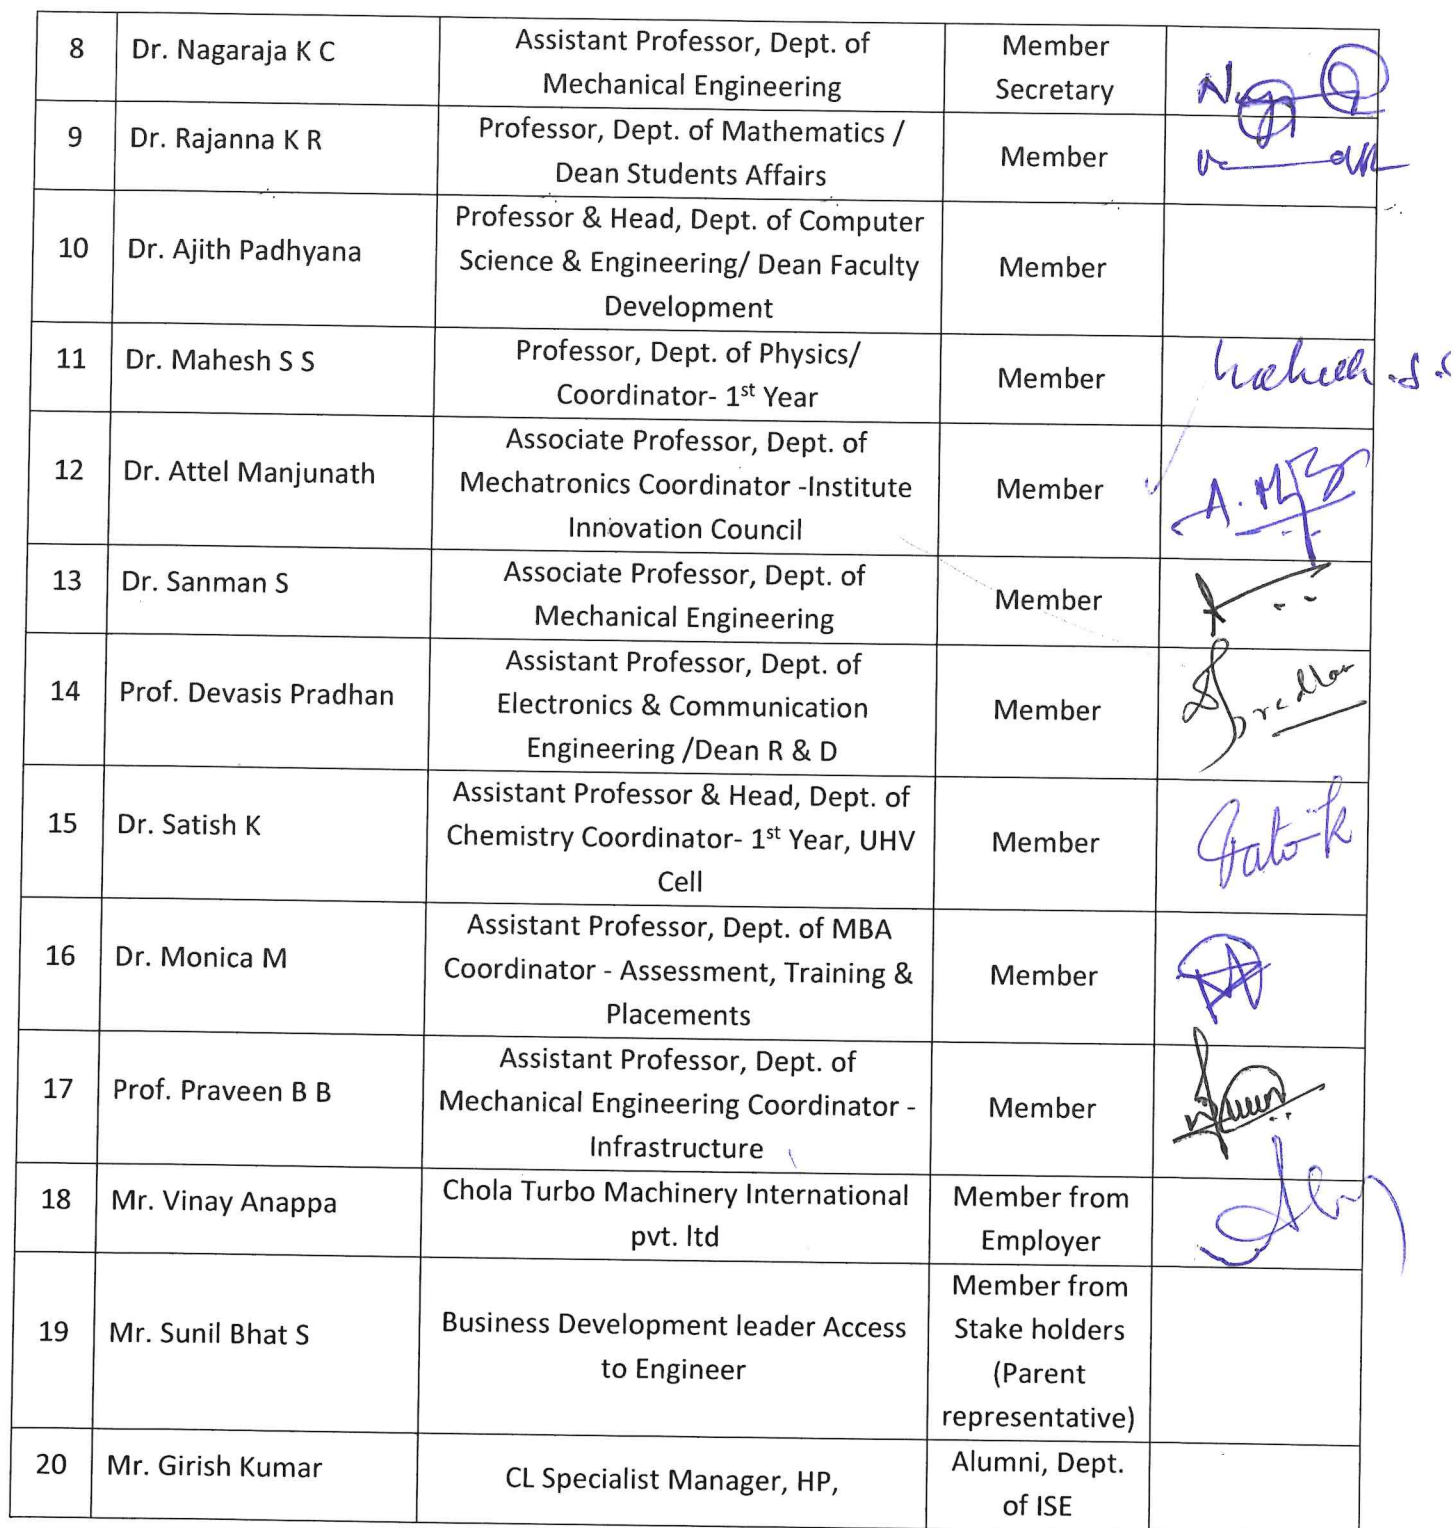 8
Dr. Nagaraja K C
Assistant Professor, Dept. of
Mechanical Engineering
Member
Secretary
9
Dr. Rajanna K R
Professor, Dept. of Mathematics /
Dean Students Affairs
Member
10
Dr. Ajith Padhyana
Professor & Head, Dept. of Computer
Science & Engineering/ Dean Faculty
Development
Member
11
Dr. Mahesh S S
Professor, Dept. of Physics/
Coordinator- 1st Year
Member
12
Dr. Attel Manjunath
Associate Professor, Dept. of
Mechatronics Coordinator -Institute
Innovation Council
Member
13
Dr. Sanman S
Associate Professor, Dept. of
Mechanical Engineering
Member
14
Prof. Devasis Pradhan
Assistant Professor, Dept. of
Electronics & Communication
Engineering /Dean R & D
Member
15
Dr. Satish K
Assistant Professor & Head, Dept. of
Chemistry Coordinator- 1st Year, UHV
Cell
Member
16
Dr. Monica M
Assistant Professor, Dept. of MBA
Coordinator - Assessment, Training &
Placements
Member
17
Prof. Praveen B B
Assistant Professor, Dept. of
Mechanical Engineering Coordinator -
Infrastructure
Member
18
Mr. Vinay Anappa
Chola Turbo Machinery International
pvt. ltd
Member from
Employer
19
Mr. Sunil Bhat S
Business Development leader Access
to Engineer
Member from
Stake holders
(Parent
representative)
20
Mr. Girish Kumar
CL Specialist Manager, HP,
Alumni, Dept.
of ISE